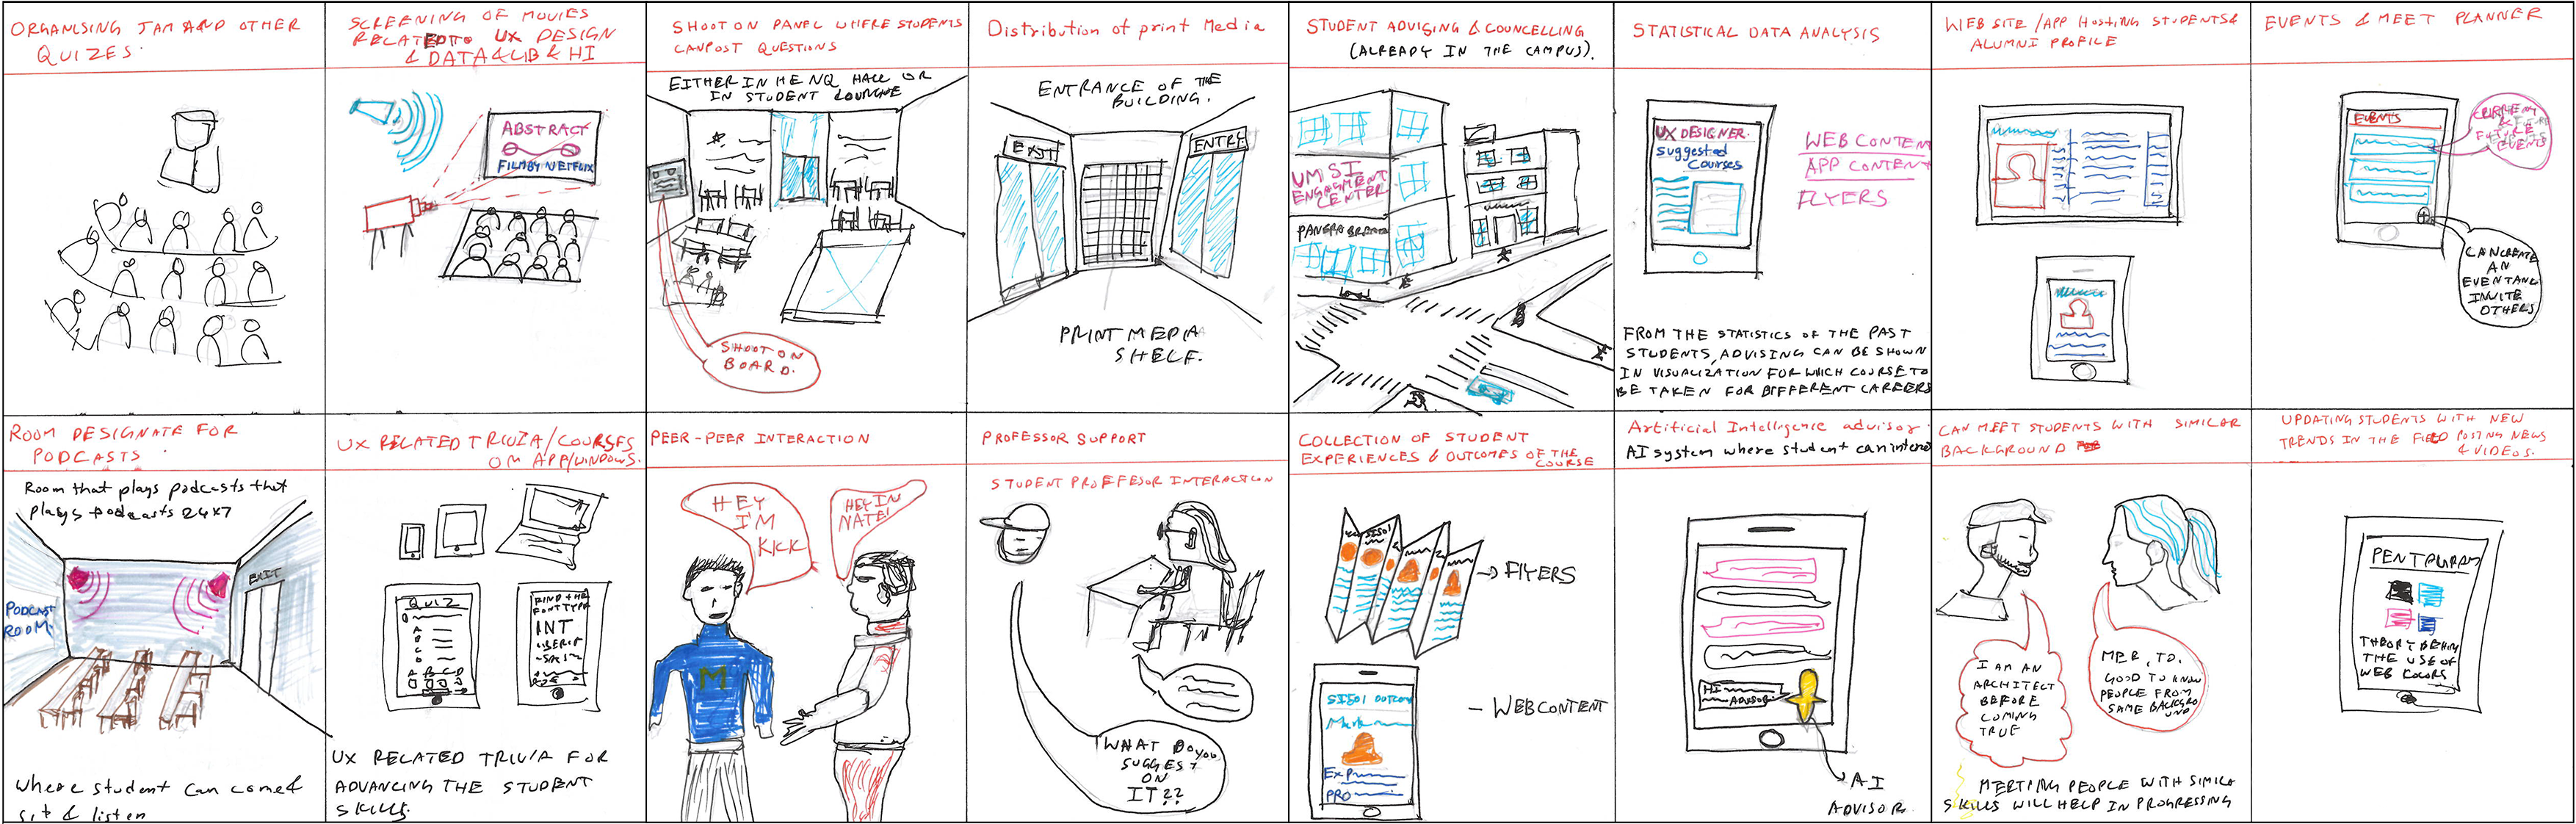 ORGANISING JAM AND OTHER
QUIZES.
SCREENING OF MOVIES
RELATED TO UX DESIGN
& DATA & LIB & HI
ABSTRACT
FILM BY NETFLIX
SHOOT ON PANEL WHERE STUDENTS
CAN POST QUESTIONS
EITHER IN HE NQ HALL OR
IN STUDENT LOUNGUE
SHOOT ON
BOARD.
Distribution of print Media
ENTRANCE OF THE
BUILDING.
EXIT
ENTR.
PRINT MEDIA
SHELF.
STUDENT ADVISING & COUNCELLING
(ALREADY IN THE CAMPUS).
UMSI
ENGAGMENT
CENTER
PANERA BREAD
STATISTICAL DATA ANALYSIS
UX DESIGNER.
Suggested
Courses
WEB CONTENT
APP CONTENT
FLYERS
FROM THE STATISTICS OF THE PAST
STUDENTS, ADVISING CAN BE SHOWN
IN VISUALIZATION FOR WHICH COURSE TO
BE TAKEN FOR DIFFERENT CAREERS
WEB SITE/APP HOSTING STUDENTS &
ALUMNI PROFILE
EVENTS & MEET PLANNER
EVENTS
CURRENT
&
FUTURE
EVENTS
CAN CREATE
AN
EVENT AND
INVITE
OTHERS
ROOM DESIGNATE FOR
PODCASTS
Room that plays podcasts that
plays podcasts 24x7
EXIT
PODCAST
ROOM.
Where student can come &
sit & listen
UX RELATED TRIVIA/COURSES
ON APP/WINDOWS.
QUIZ
A
B
C
D
A B C D
FIND THE
FONT TYPE
INT
UX RELATED TRIVIA FOR
ADVANCING THE STUDENT
SKILLS.
PEER-PEER INTERACTION
HEY
I'M
KICK
HEY IN
NATE!
M
PROFESSOR SUPPORT
STUDENT PROFFESOR INTERACTION
WHAT DO you
SUGGEST
ON
IT??
COLLECTION OF STUDENT
EXPERIENCES & OUTCOMES OF THE
COURSE
SI501
→ FLYERS
SI501 OUTCOM
EXP
PRO
- WEB CONTENT
Artificial Intelligence advisor.
AI system where student can interd
HI
ADVISOR
AI
ADVISOR
CAN MEET STUDENTS WITH SIMILAR
BACKGROUND
I AM AN
ARCHITECT
BEFORE
COMING
TRUE
MEE, TO.
GOOD TO KNOW
PEOPLE FROM
SAME BACKGRO
UND
MEETING PEOPLE WITH SIMILA
SKILLS WILL HELP IN PROGRESSING
UPDATING STUDENTS WITH NEW
TRENDS IN THE FIELD POSTING NEWS
& VIDEOS.
PENTAGRAM
THEORY BEHIN
THE USE OF
WEB COLORS